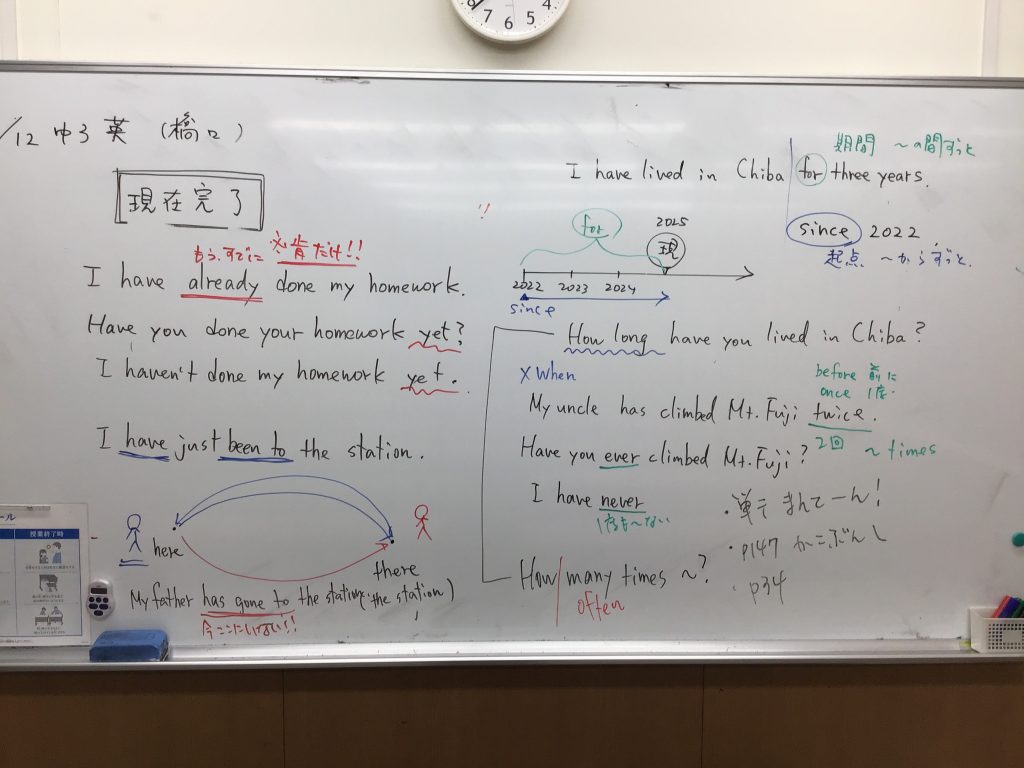 /12 中3 英 (橋口)
現在完了
もう、すでに 必 肯だけ!!
I have already done my homework.
Have you done your homework yet?
I haven't done my homework yet.
I have just been to the station.
here
there
(the station)
My father has gone to the station.
今ここにいない!!
!!
期間 ～の間ずっと
I have lived in Chiba for three years.
since 2022
起点 ～からずっと.
for
2025
現
2022 2023 2024
since
How long have you lived in Chiba?
× When
before 前に
once 1度
My uncle has climbed Mt. Fuji twice.
2回 ～times
Have you ever climbed Mt. Fuji?
I have never
1度も～ない
How many times ～?
often
・単テ まんてーん!
・p147 かこぶんし
・p34
授業終了時
7 6 5 4